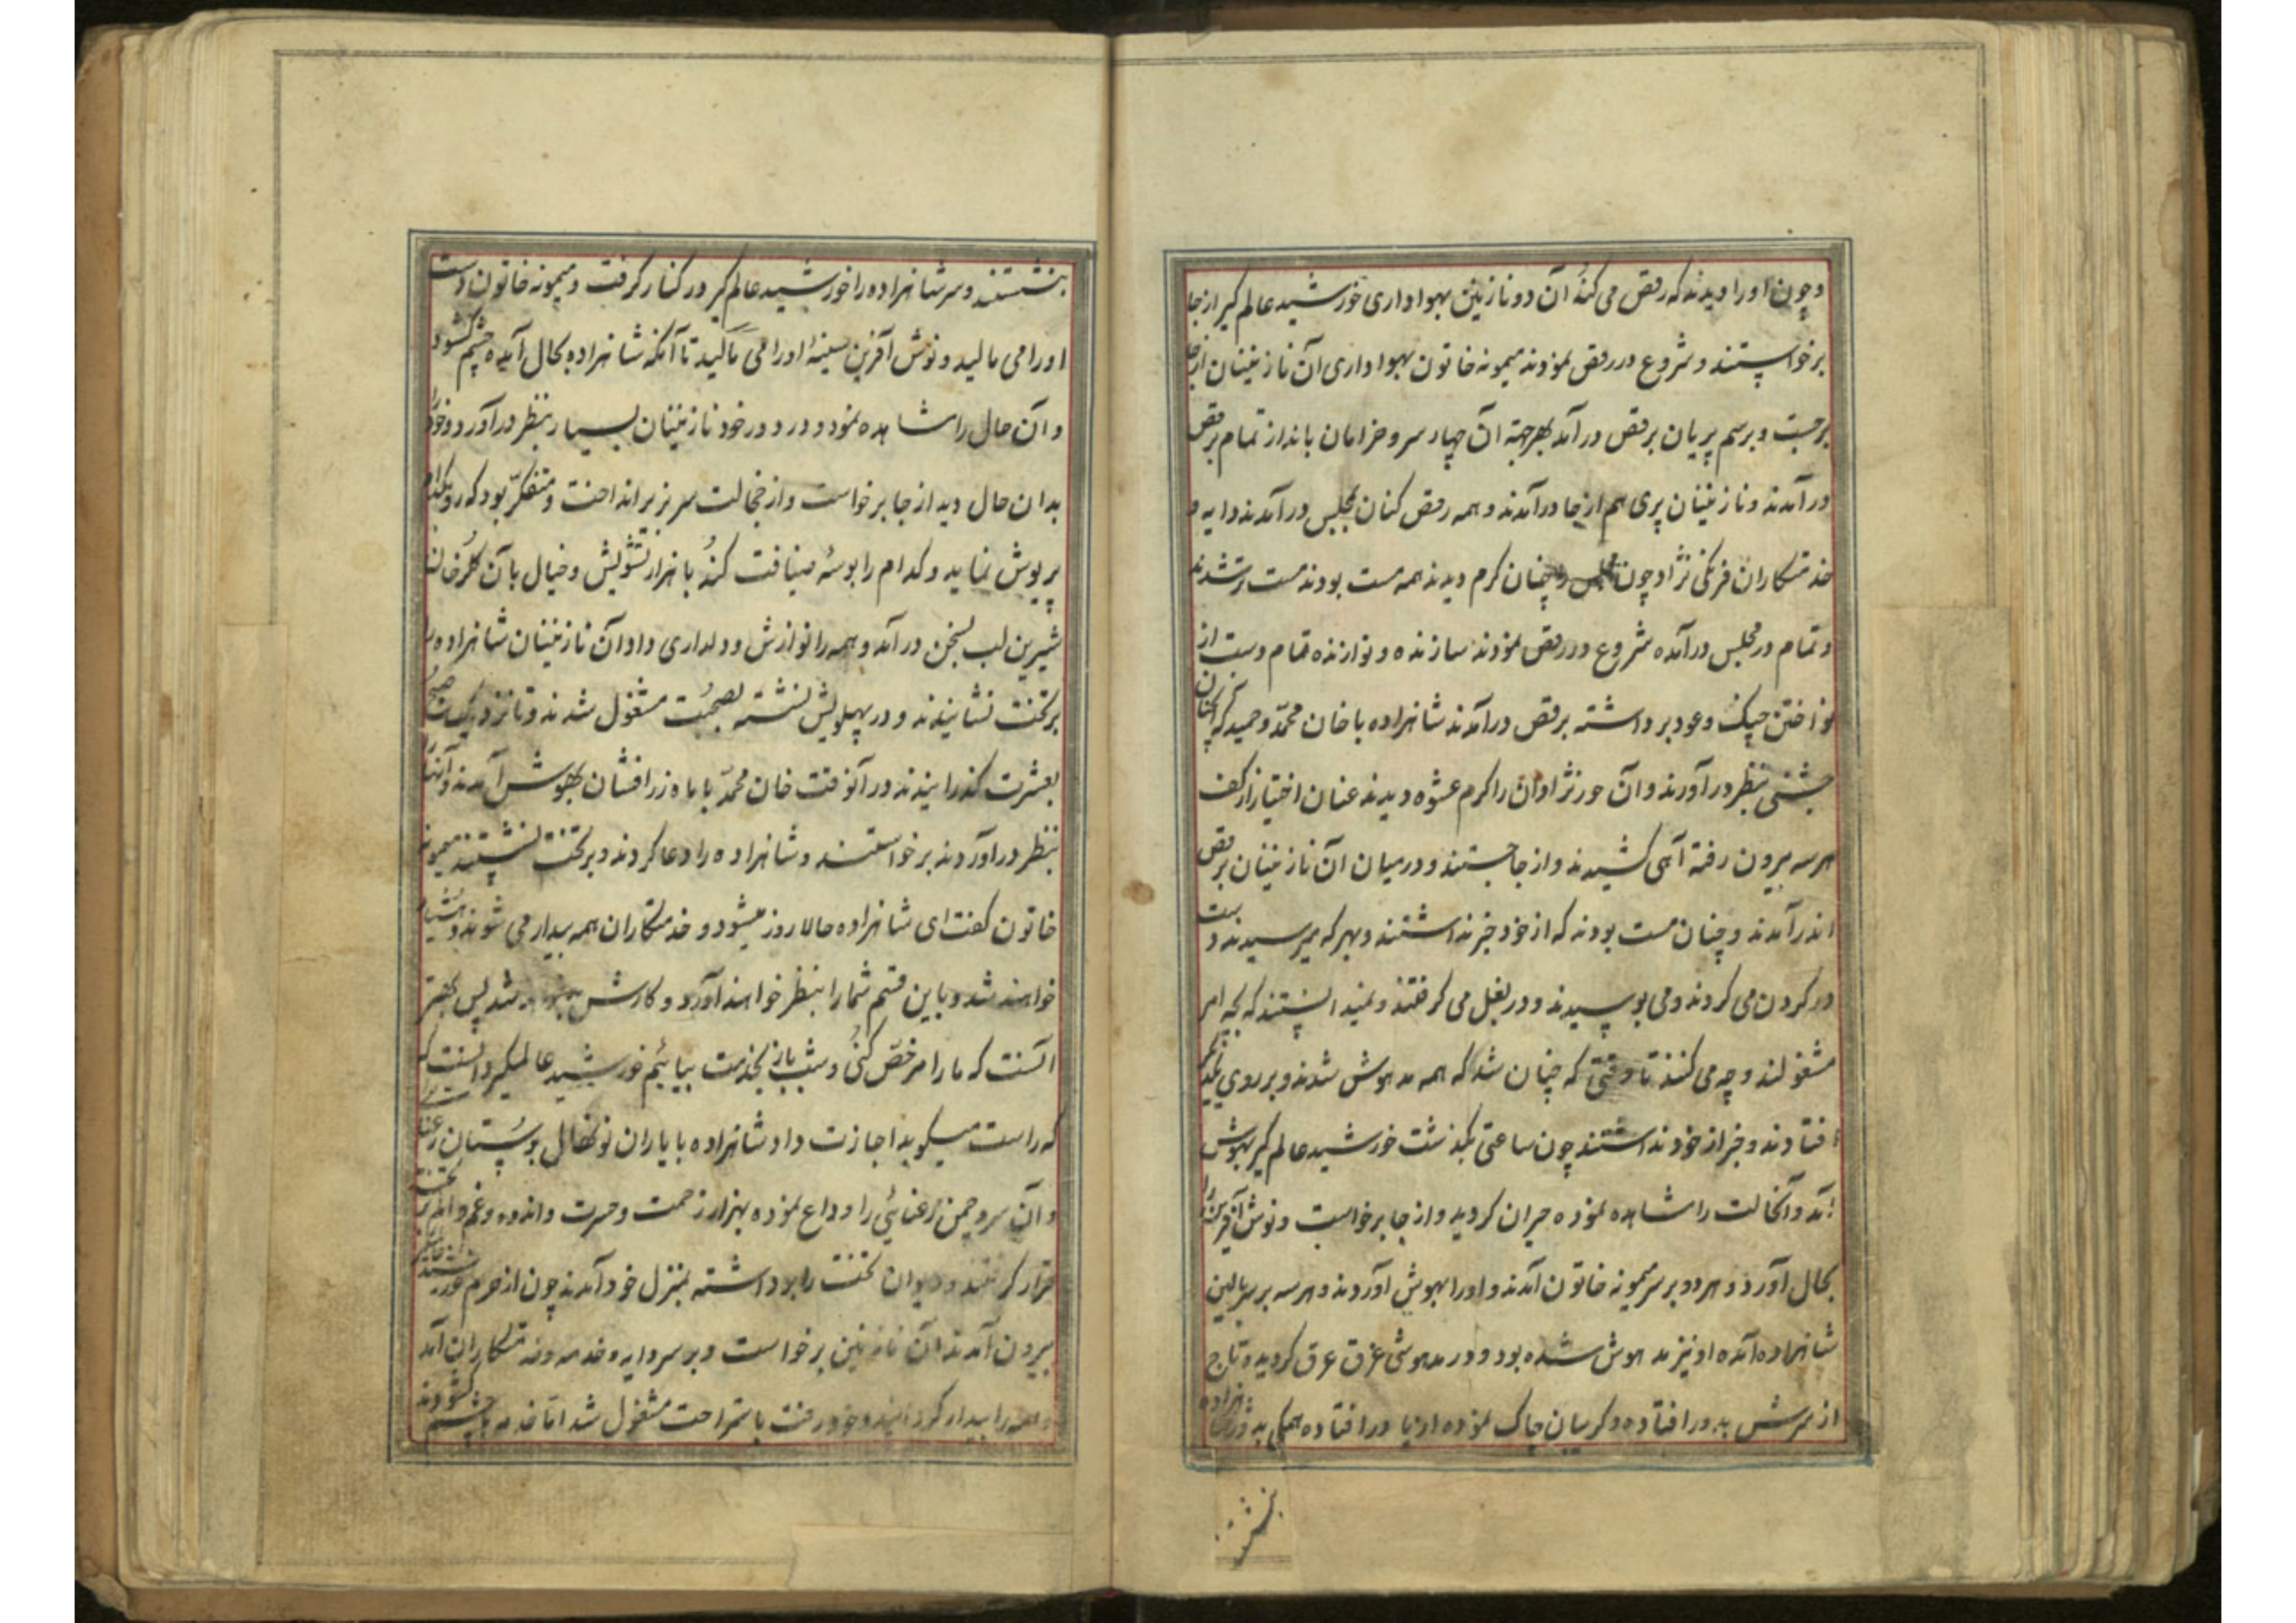 و چون او را دیدند که رقص می کند آن دو نازنین بهواداری خورشید عالم کیر از جا
برخواستند و شروع در رقص نمودند میمونه خاتون بهواداری آن نازنینان از جا
برجست و برسم پریان برقص در آمد بهر جهة آن چهار سرو خرامان بانداز تمام برقص
در آمدند و نازنینان پری هم از جا در آمدند و همه رقص کنان بمجلس در آمدند دایه و
خدمتکاران فرنکی نژاد چون مجلس را چنان کرم دیدند همه مست بودند مست تر شدند
و تمام در مجلس در آمده شروع در رقص نمودند سازنده و نوازنده تمام دست از
نواختن چنک و عود برداشته برقص در آمدند شاهزاده با خان محمد و حمید که آنچنان
جشنی بنظر در آورند و آن حور نژادان را کرم عشوه دیدند عنان اختیار از کف
هر سه بیرون رفته آهی کشیدند و از جا جستند و در میان آن نازنینان برقص
اندر آمدند و چنان مست بودند که از خود خبر نداشتند و بهر که میرسیدند دست
در کردن می کردند و می بوسیدند و در بغل می کرفتند و نمیدانستند که بچه امر
مشغولند و چه می کنند تا وقتی که چنان شد که همه مدهوش شدند و بر روی یکدیکر
افتادند و خبر از خود نداشتند چون ساعتی بکذشت خورشید عالم کیر بهوش
آمد و آنحالت را مشاهده نموده حیران کردید و از جا برخواست و نوش آفرین را
بحال آورد و هر دو بر سر میمونه خاتون آمدند و او را بهوش آوردند و هر سه بر سر بالین
شاهزاده آمده او نیز مدهوش شده بود و در مدهوشی غرق عرق کردیده و تاج
از سرش بدور افتاده و کریبان چاک نموده از پا در افتاده همکی بدور شاهزاده
بنشستند
بنشستند و سر شاهزاده را خورشید عالم کیر در کنار کرفت و میمونه خاتون دست
او را می مالید و نوش آفرین سینهٔ او را می مالید تا آنکه شاهزاده بحال آمده چشم کشود
و آن حال را مشاهده نمود و در دور خود نازنینان بسیار بنظر در آورد و خود را
بدان حال دید از جا برخواست و از خجالت سر بزیر انداخت و متفکر بود که رو بکدام
پریوش نماید و کدام را بوسهٔ ضیافت کند با هزار تشویش و خیال با آن کلرخان
شیرین لب بسخن در آمد و همه را نوازش و دلداری داد آن نازنینان شاهزاده را
بر تخت نشانیدند و در پهلویش نشسته بصحبت مشغول شدند و تا نزدیک صبح
بعشرت کذرانیدند در آنوقت خان محمد با ماه زرافشان بهوش آمدند و آنها را
بنظر در آوردند برخواستند و شاهزاده را دعا کردند و بر تخت نشستند میمونه
خاتون کفت ای شاهزاده حالا روز میشود و خدمتکاران همه بیدار می شوند و هشیار
خواهند شد و باین قسم شما را بنظر خواهند آورد و کارش شد پس بهتر
آنست که ما را مرخص کنی و شب باز بخدمت بیائیم خورشید عالمکیر دانست که
که راست میکوید اجازت داد شاهزاده با یاران نونهال بوستان رعنا
و آن سرو چمن رعنائی را وداع نموده بهزار زحمت و حسرت و اندوه و غم و الم بر تخت
قرار کرفتند و دیوان تخت را برداشته بمنزل خود آمدند چون از حرم خورشید عالمکیر
بیرون آمدند آن نازنین برخواست و بر سر دایه و خدمه و خدمتکاران آمد
و همه را بیدار کردانید و خود رفت باستراحت مشغول شد اما خدمه چشم کشودند